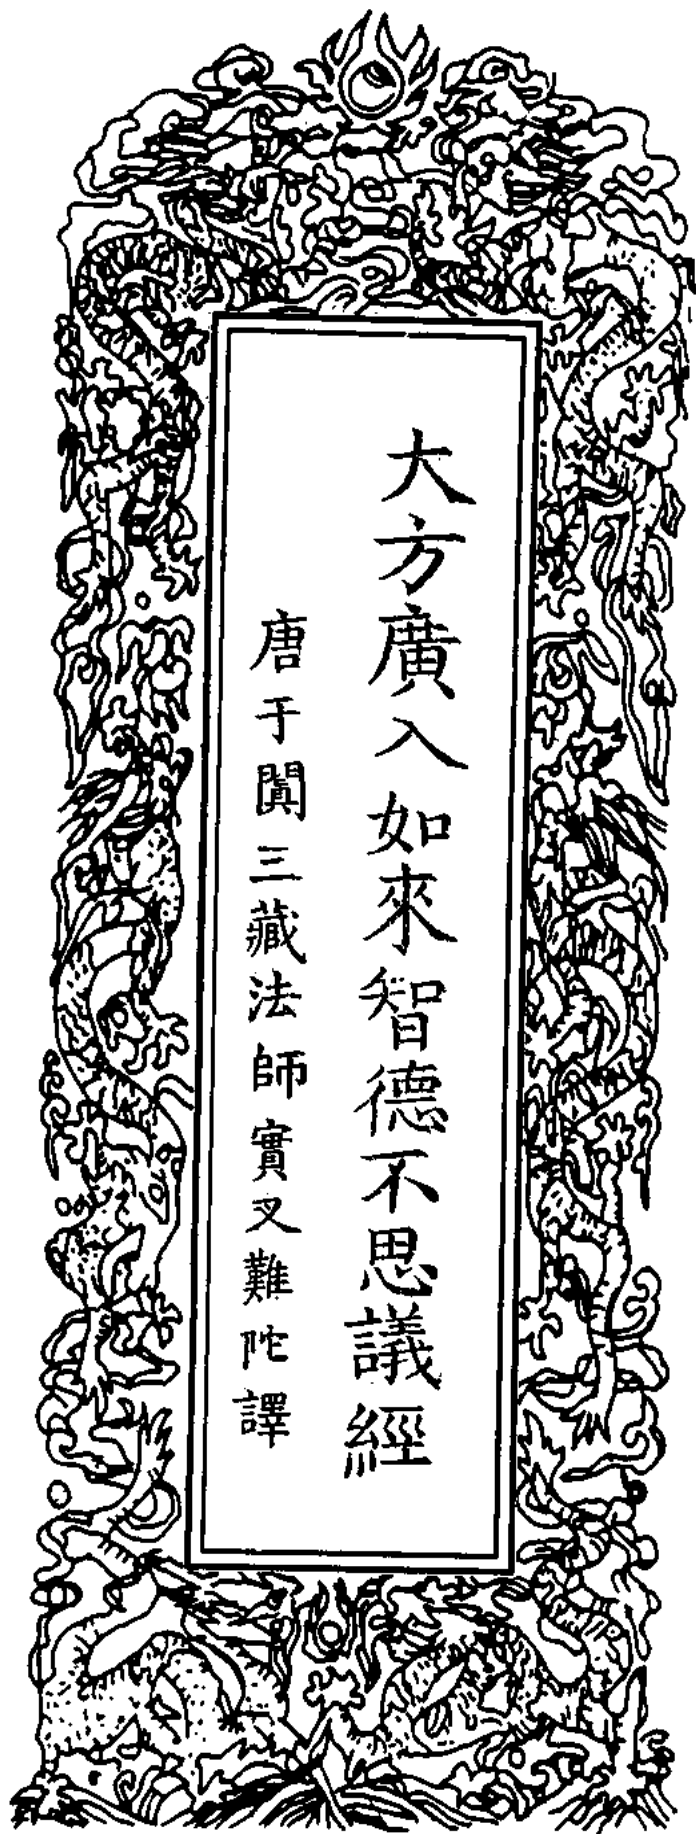 大方廣入如來智德不思議經
唐于闐三藏法師實叉難陀譯